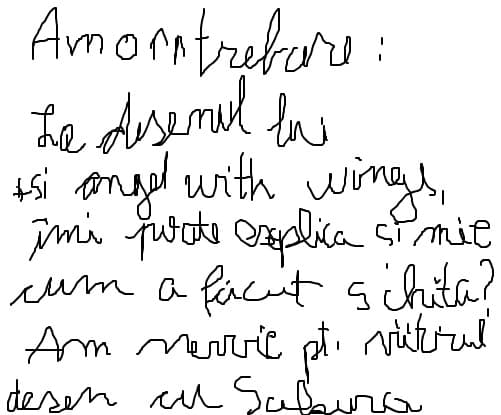 Am o întrebare :
La desenul lui
+si angel with wings,
îmi poate explica si mie
cum a făcut schița?
Am nevoie pt. viitorul
desen cu Sabura